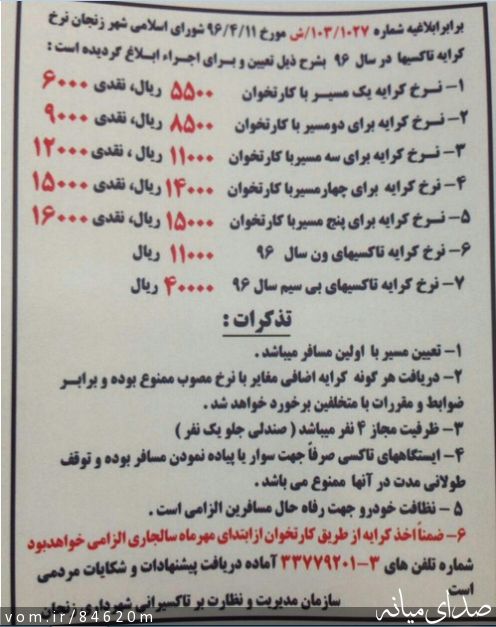 برابر ابلاغیه شماره ۱۰۳/۱۰۲۷/ش مورخ ۹۶/۴/۱۱ شورای اسلامی شهر زنجان نرخ
کرایه تاکسیها در سال ۹۶ بشرح ذیل تعیین و برای اجراء ابلاغ گردیده است :
۱- نرخ کرایه یک مسیر با کارتخوان ۵۵۰۰ ریال، نقدی ۶۰۰۰
۲- نرخ کرایه برای دومسیر با کارتخوان ۸۵۰۰ ریال، نقدی ۹۰۰۰
۳- نرخ کرایه برای سه مسیر با کارتخوان ۱۱۰۰۰ ریال ، نقدی ۱۲۰۰۰
۴- نرخ کرایه برای چهارمسیر با کارتخوان ۱۴۰۰۰ ریال، نقدی ۱۵۰۰۰
۵- نرخ کرایه برای پنج مسیر با کارتخوان ۱۵۰۰۰ ریال، نقدی ۱۶۰۰۰
۶- نرخ کرایه تاکسیهای ون سال ۹۶ ۱۱۰۰۰ ریال
۷- نرخ کرایه تاکسیهای بی سیم سال ۹۶ ۴۰۰۰۰ ریال
تذکرات :
۱- تعیین مسیر با اولین مسافر میباشد .
۲- دریافت هر گونه کرایه اضافی مغایر با نرخ مصوب ممنوع بوده و برابر
ضوابط و مقررات با متخلفین برخورد خواهد شد .
۳- ظرفیت مجاز ۴ نفر میباشد ( صندلی جلو یک نفر )
۴- ایستگاههای تاکسی صرفاً جهت سوار یا پیاده نمودن مسافر بوده و توقف
طولانی مدت در آنها ممنوع می باشد .
۵ - نظافت خودرو جهت رفاه حال مسافرین الزامی است .
۶- ضمناً اخذ کرایه از طریق کارتخوان از ابتدای مهر ماه سالجاری الزامی خواهد بود
شماره تلفن های ۳-۳۳۷۷۹۲۰۱ آماده دریافت پیشنهادات و شکایات مردمی
است
سازمان مدیریت و نظارت بر تاکسیرانی شهرداری زنجان
vom.ir/84620m
صدای میانه